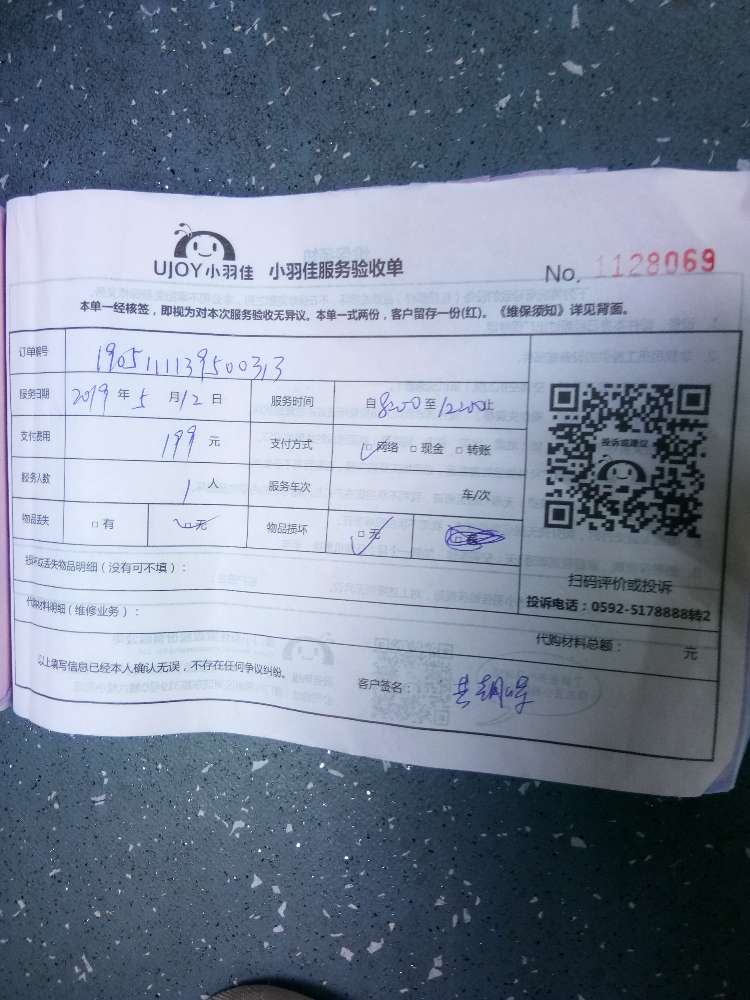 UJOY小羽佳 小羽佳服务验收单
No. 1128069
本单一经核签，即视为对本次服务验收无异议。本单一式两份，客户留存一份(红)。《维保须知》详见背面。
订单编号 190511113950033
服务日期 2019 年 5 月 12 日 服务时间 自 8:00 至 12:00 止
支付费用 199 元 支付方式 □网络 □现金 □转账
服务人数 1 人 服务车次 车/次
物品丢失 □有 □无 物品损坏 □无
投诉或建议
扫码评价或投诉
投诉电话：0592-5178888转2
损坏或丢失物品明细（没有可不填）：
代购材料明细（维修业务）：
代购材料总额： 元
以上填写信息已经本人确认无误，不存在任何争议纠纷。
客户签名：